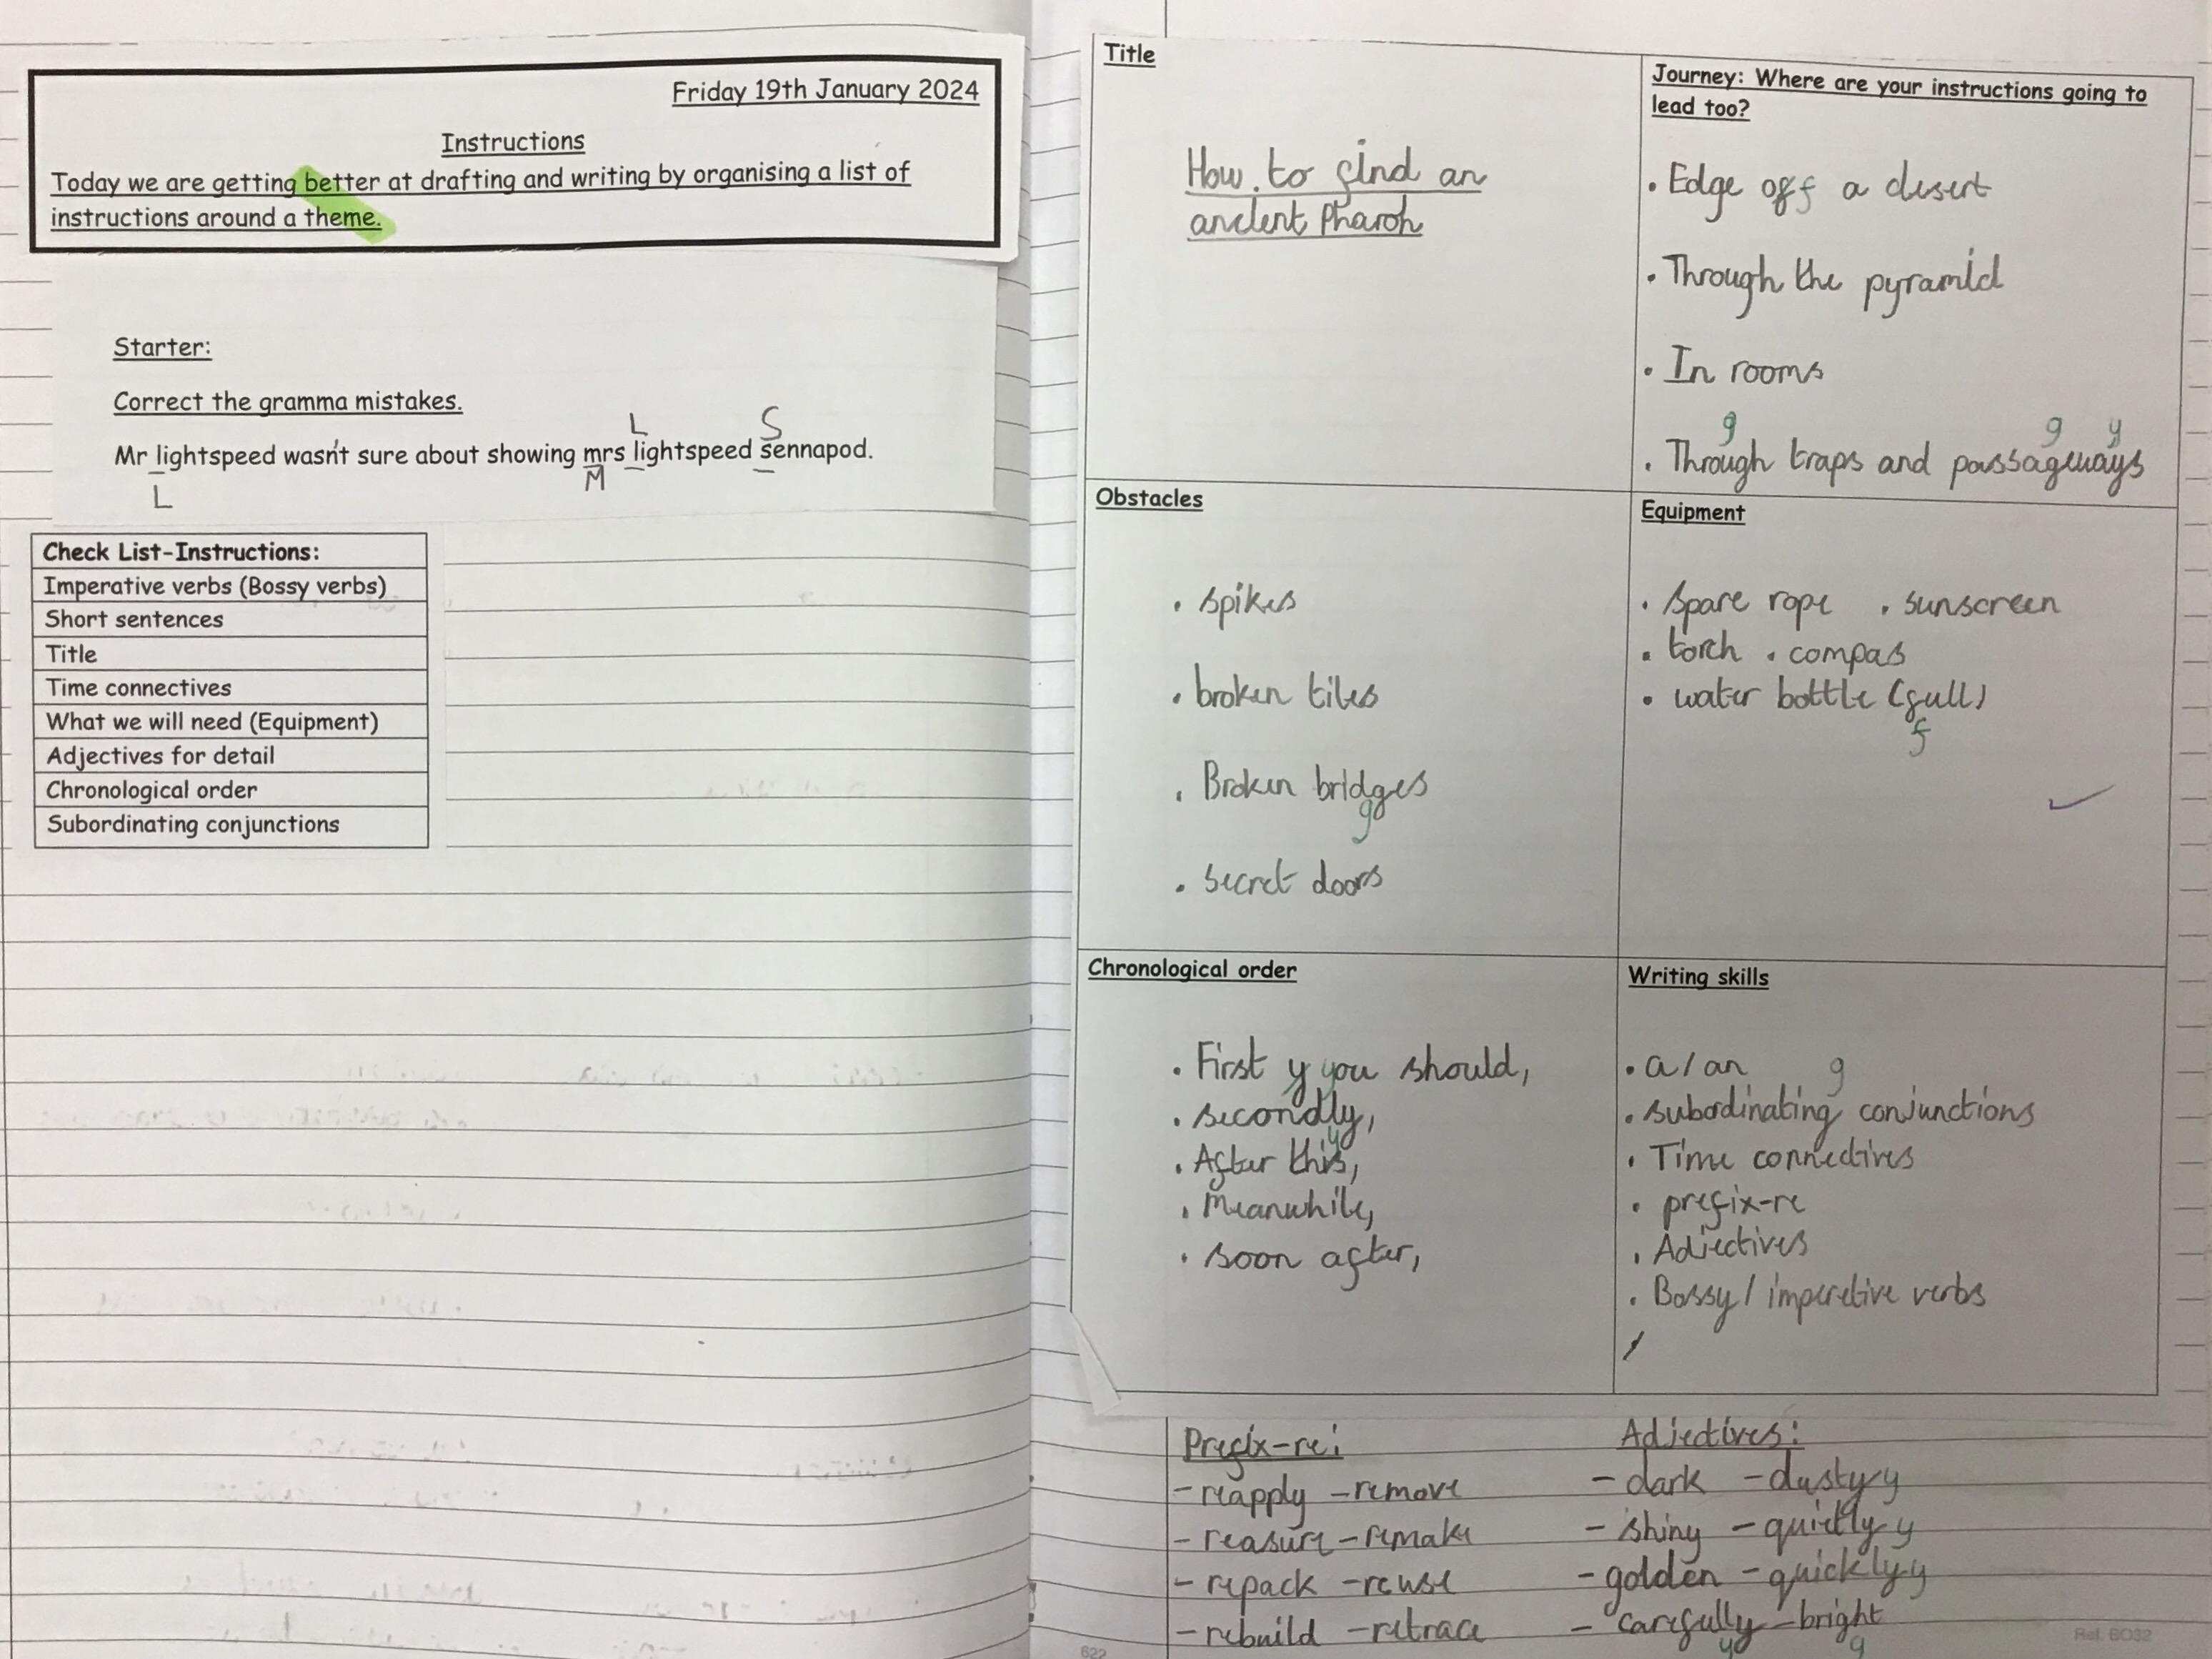 Friday 19th January 2024
Instructions
Today we are getting better at drafting and writing by organising a list of
instructions around a theme.
Starter:
Correct the gramma mistakes.
L S
Mr lightspeed wasn't sure about showing mrs lightspeed sennapod.
L M
Check List-Instructions:
Imperative verbs (Bossy verbs)
Short sentences
Title
Time connectives
What we will need (Equipment)
Adjectives for detail
Chronological order
Subordinating conjunctions
Title
How to find an
ancient Pharoh
Journey: Where are your instructions going to
lead too?
. Edge off a desert
. Through the pyramid
. In rooms
g g y
. Through traps and passageways
Obstacles
. spikes
. broken tiles
. Broken bridges
g
. secret doors
Equipment
. spare rope . sunscreen
. torch . compas
. water bottle (full)
f
Chronological order
. First y you should,
. secondly,
y
. After this,
. Meanwhile,
. soon after,
Writing skills
. a/an g
. subordinating conjunctions
. Time connectives
. prefix-re
. Adjectives
. Bossy/imperetive verbs
Prefix-re:
- reapply - remove
- reasure - remake
- repack - reuse
- rebuild - retrace
Adjectives:
- dark - dusty y
- shiny - quietly y
- golden - quickly y
- carefully - bright
y g
622
Ref. BO32